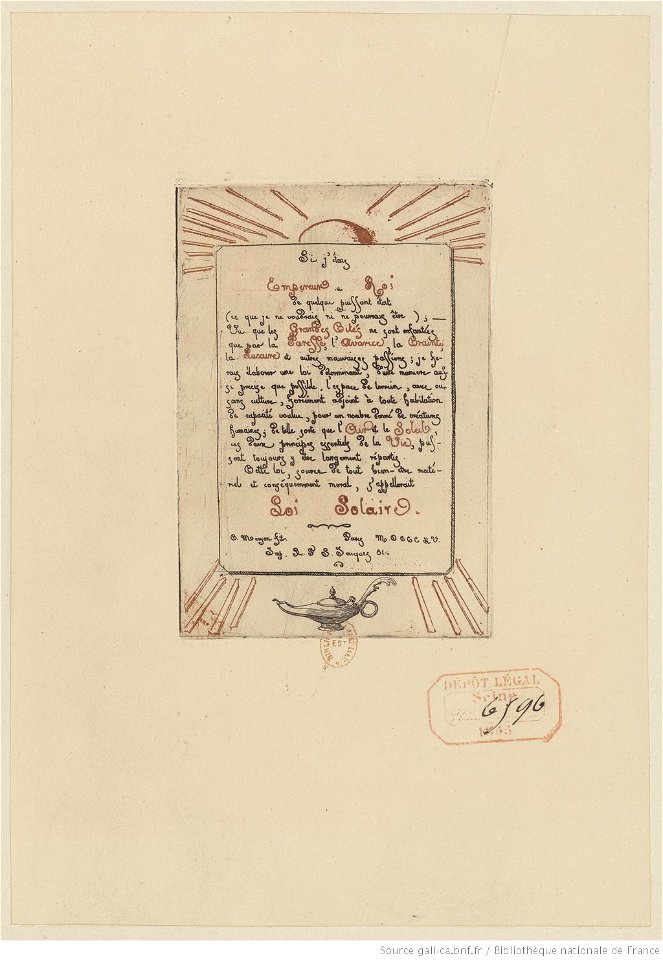 Si j'étais
Empereur ou Roi
de quelque puissant état
(ce que je ne voudrais ni ne pourrais être) ; —
Vu que les Grandes Cités ne sont enfantées
que par la Paresse, l'Avarice, la Crainte,
la Luxure et autres mauvaises passions ; je fe-
rais élaborer une loi déterminant, d'une manière aus-
si précise que possible, l'espace de terrain, avec ou
sans culture, forcément adjoint à toute habitation
de capacité voulue, pour un nombre donné de créatures
humaines ; de telle sorte que l'Air et le Soleil,
ces deux principes essentiels de la Vie, puis-
sent toujours y être largement répartis.
Cette loi, source de tout bien-être maté-
riel et conséquemment moral, s'appellerait
Loi Solaire.
C. Meryon ft. Paris MDCCCLV.
Imp. R. St. Jacques 81.
DÉPÔT LÉGAL
Seine
6596
1855
Source gallica.bnf.fr / Bibliothèque nationale de France